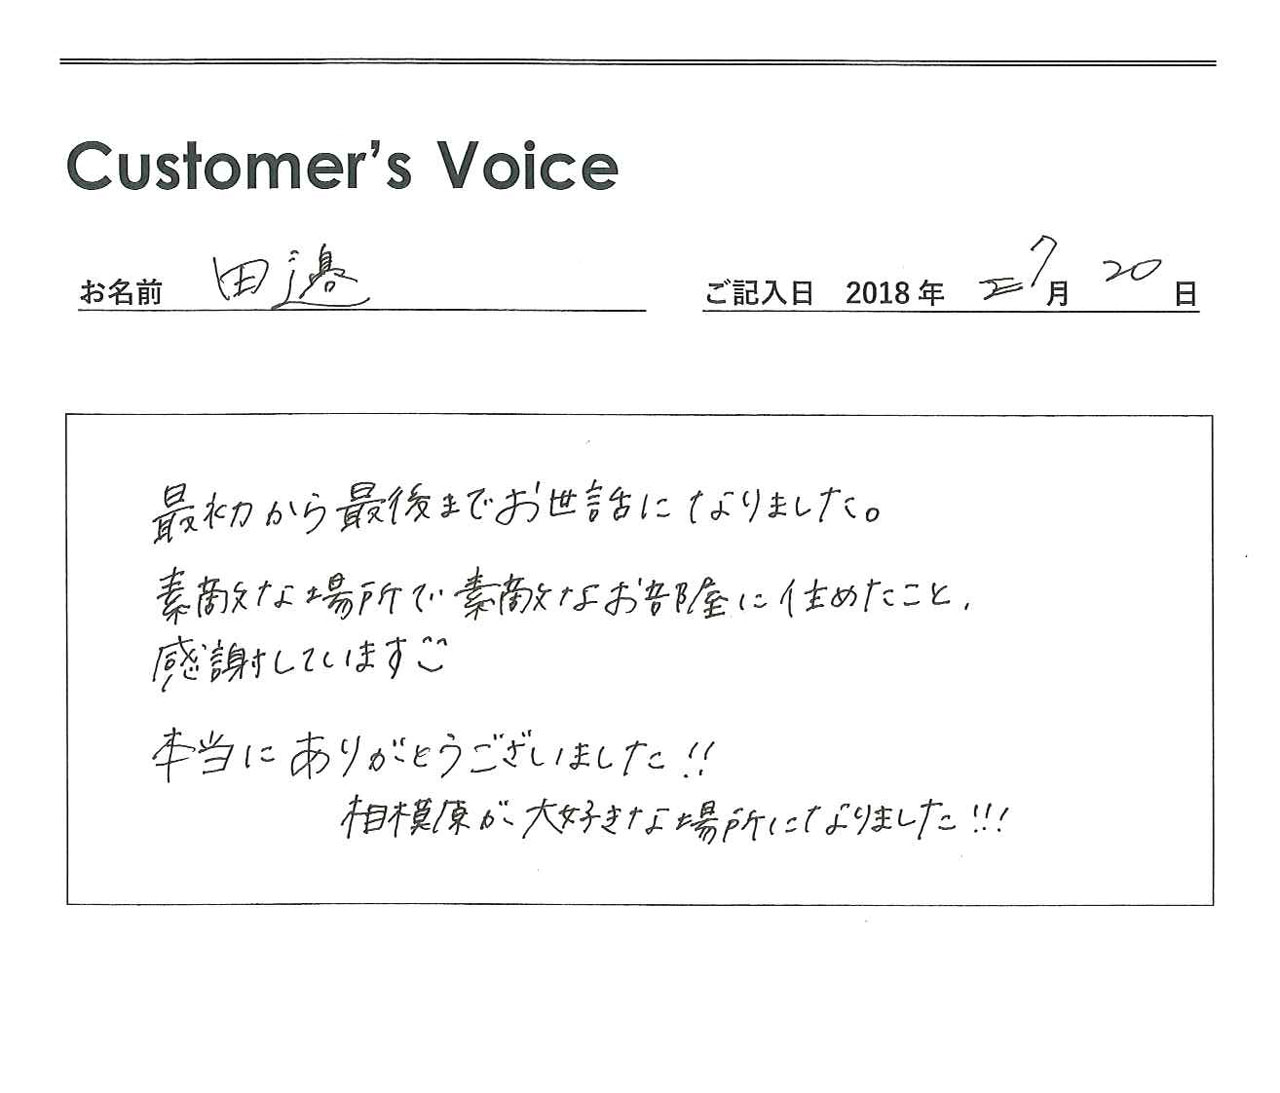 Customer's Voice
お名前 田邉 ご記入日 2018年 7月 20日
最初から最後までお世話になりました。
素敵な場所で素敵なお部屋に住めたこと、
感謝しています
本当にありがとうございました!!
相模原が、大好きな場所になりました!!!